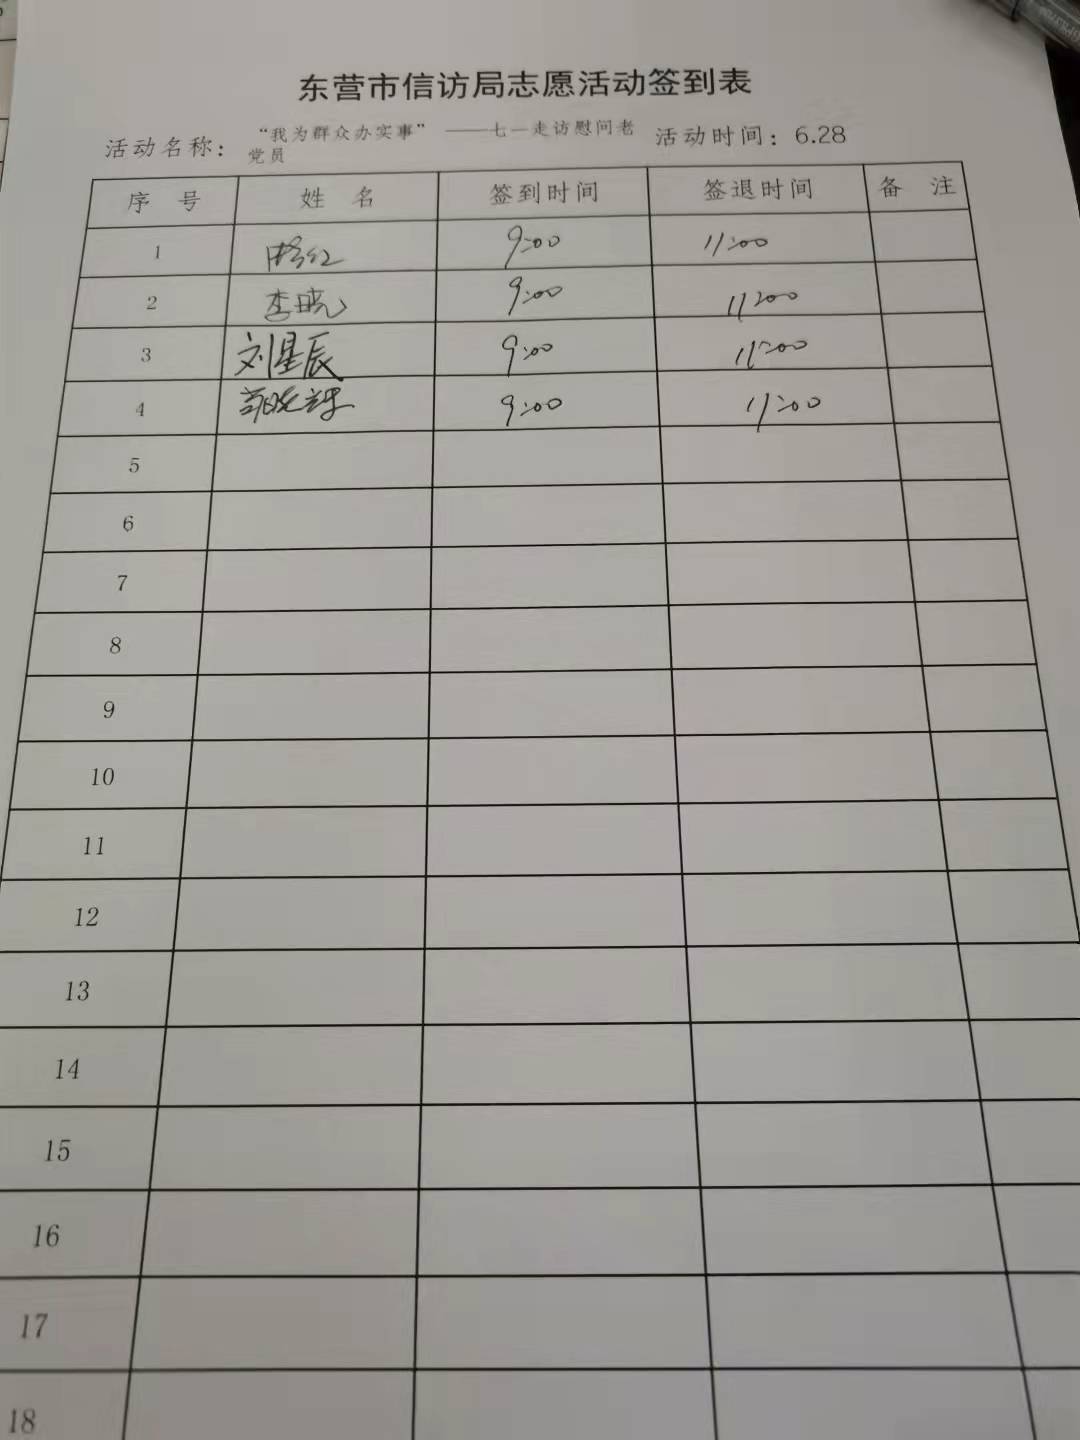 东营市信访局志愿活动签到表
活动名称：“我为群众办实事”——七一走访慰问老党员 活动时间：6.28
序 号 姓 名 签到时间 签退时间 备 注
1 9:00 11:00
2 李晓 9:00 11:00
3 刘星辰 9:00 11:00
4 9:00 11:00
5
6
7
8
9
10
11
12
13
14
15
16
17
18